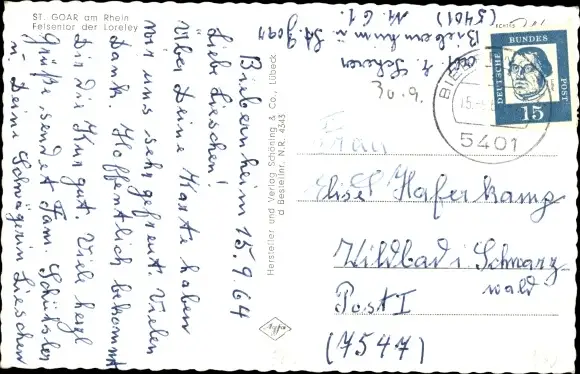 ST. GOAR am Rhein
Felsentor der Loreley
Biebernheim 15.9.64
Liebe Lieschen!
Über Deine Karte haben
wir uns sehr gefreut. Vielen
Dank. Hoffentlich bekommt
Dir die Kur gut. Viele herzl
Grüße sendet Fam. Schüssler
u. Deine Schwägerin Lieschen
Hersteller und Verlag Schöning & Co., Lübeck
d Bestellnr. N.R. 4543
Scherer
Biebernheim ü. St Goar
(5401)
30.9.
DEUTSCHE BUNDESPOST
15
5401
Frau
Elise Haferkamp
Wildbad i. Schwarz-
wald
Post I
(7547)